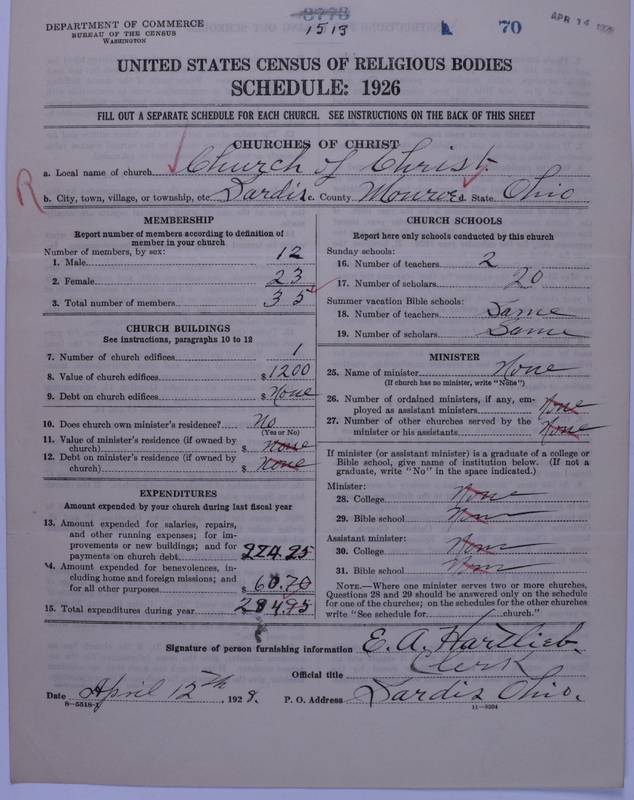 DEPARTMENT OF COMMERCE
BUREAU OF THE CENSUS
WASHINGTON
8778
1513
70
APR 14
UNITED STATES CENSUS OF RELIGIOUS BODIES
SCHEDULE: 1926
FILL OUT A SEPARATE SCHEDULE FOR EACH CHURCH. SEE INSTRUCTIONS ON THE BACK OF THIS SHEET
CHURCHES OF CHRIST
R
a. Local name of church Church of Christ.
b. City, town, village, or township, etc. Sardis c. County Monroe d. State Ohio
MEMBERSHIP
Report number of members according to definition of
member in your church
Number of members, by sex:
1. Male 12
2. Female 23
3. Total number of members 35
CHURCH BUILDINGS
See instructions, paragraphs 10 to 12
7. Number of church edifices 1
8. Value of church edifices $1200
9. Debt on church edifices $None
10. Does church own minister's residence? No
(Yes or No)
11. Value of minister's residence (if owned by
church) $None
12. Debt on minister's residence (if owned by
church) $None
EXPENDITURES
Amount expended by your church during last fiscal year
13. Amount expended for salaries, repairs,
and other running expenses; for im-
provements or new buildings; and for
payments on church debt 224.25
14. Amount expended for benevolences, in-
cluding home and foreign missions; and
for all other purposes $60.70
15. Total expenditures during year 284.95
CHURCH SCHOOLS
Report here only schools conducted by this church
Sunday schools:
16. Number of teachers 2
17. Number of scholars 20
Summer vacation Bible schools:
18. Number of teachers Same
19. Number of scholars Same
MINISTER
25. Name of minister None
(If church has no minister, write "None")
26. Number of ordained ministers, if any, em-
ployed as assistant ministers None
27. Number of other churches served by the
minister or his assistants None
If minister (or assistant minister) is a graduate of a college or
Bible school, give name of institution below. (If not a
graduate, write "No" in the space indicated.)
Minister:
28. College None
29. Bible school None
Assistant minister:
30. College None
31. Bible school None
NOTE.—Where one minister serves two or more churches,
Questions 28 and 29 should be answered only on the schedule
for one of the churches; on the schedules for the other churches
write "See schedule for church."
Signature of person furnishing information E. A. Hartlieb
Official title Clerk
Date April 12th, 1928. P. O. Address Sardis Ohio.
8—5518-f
11—9204